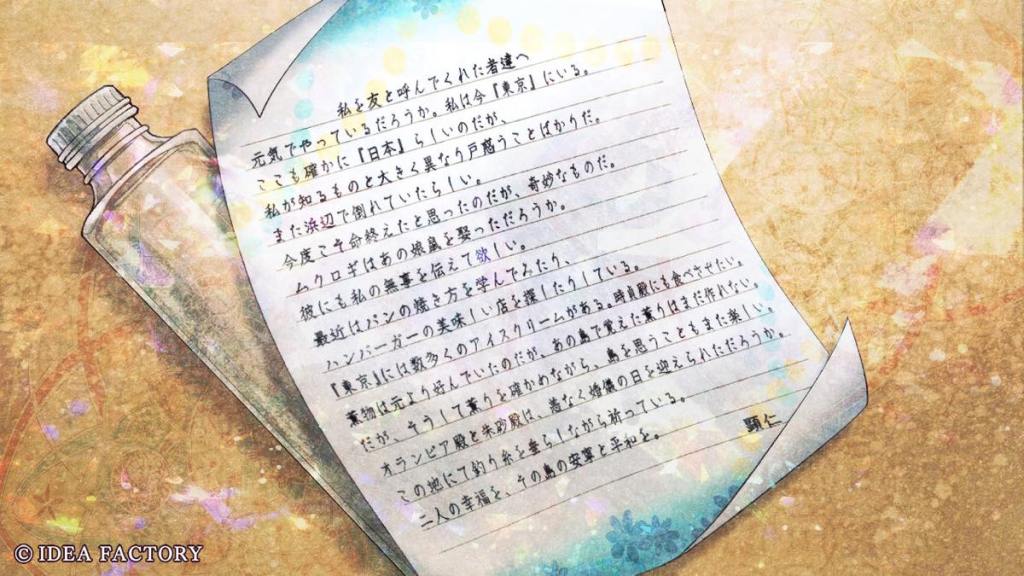 私を友と呼んでくれた者達へ
元気でやっているだろうか。私は今『東京』にいる。
ここも確かに『日本』らしいのだが、
私が知るものと大きく異なり戸惑うことばかりだ。
また浜辺で倒れていたらしい。
今度こそ命終えたと思ったのだが、奇妙なものだ。
ムクロギはあの娘鼠を娶っただろうか。
彼にも私の無事を伝えて欲しい。
最近はパンの焼き方を学んでみたり、
ハンバーガーの美味しい店を探したりしている。
『東京』には数多くのアイスクリームがある。時貞殿にも食べさせたい。
薫物は元より好んでいたのだが、あの島で覚えた薫りはまだ作れない。
だが、そうして薫りを確かめながら、島を思うこともまた楽しい。
オランピア殿と朱砂殿は、恙なく婚儀の日を迎えられただろうか。
この地にて釣り糸を垂らしながら祈っている。
二人の幸福を、その島の安寧と平和を。
顕仁
© IDEA FACTORY